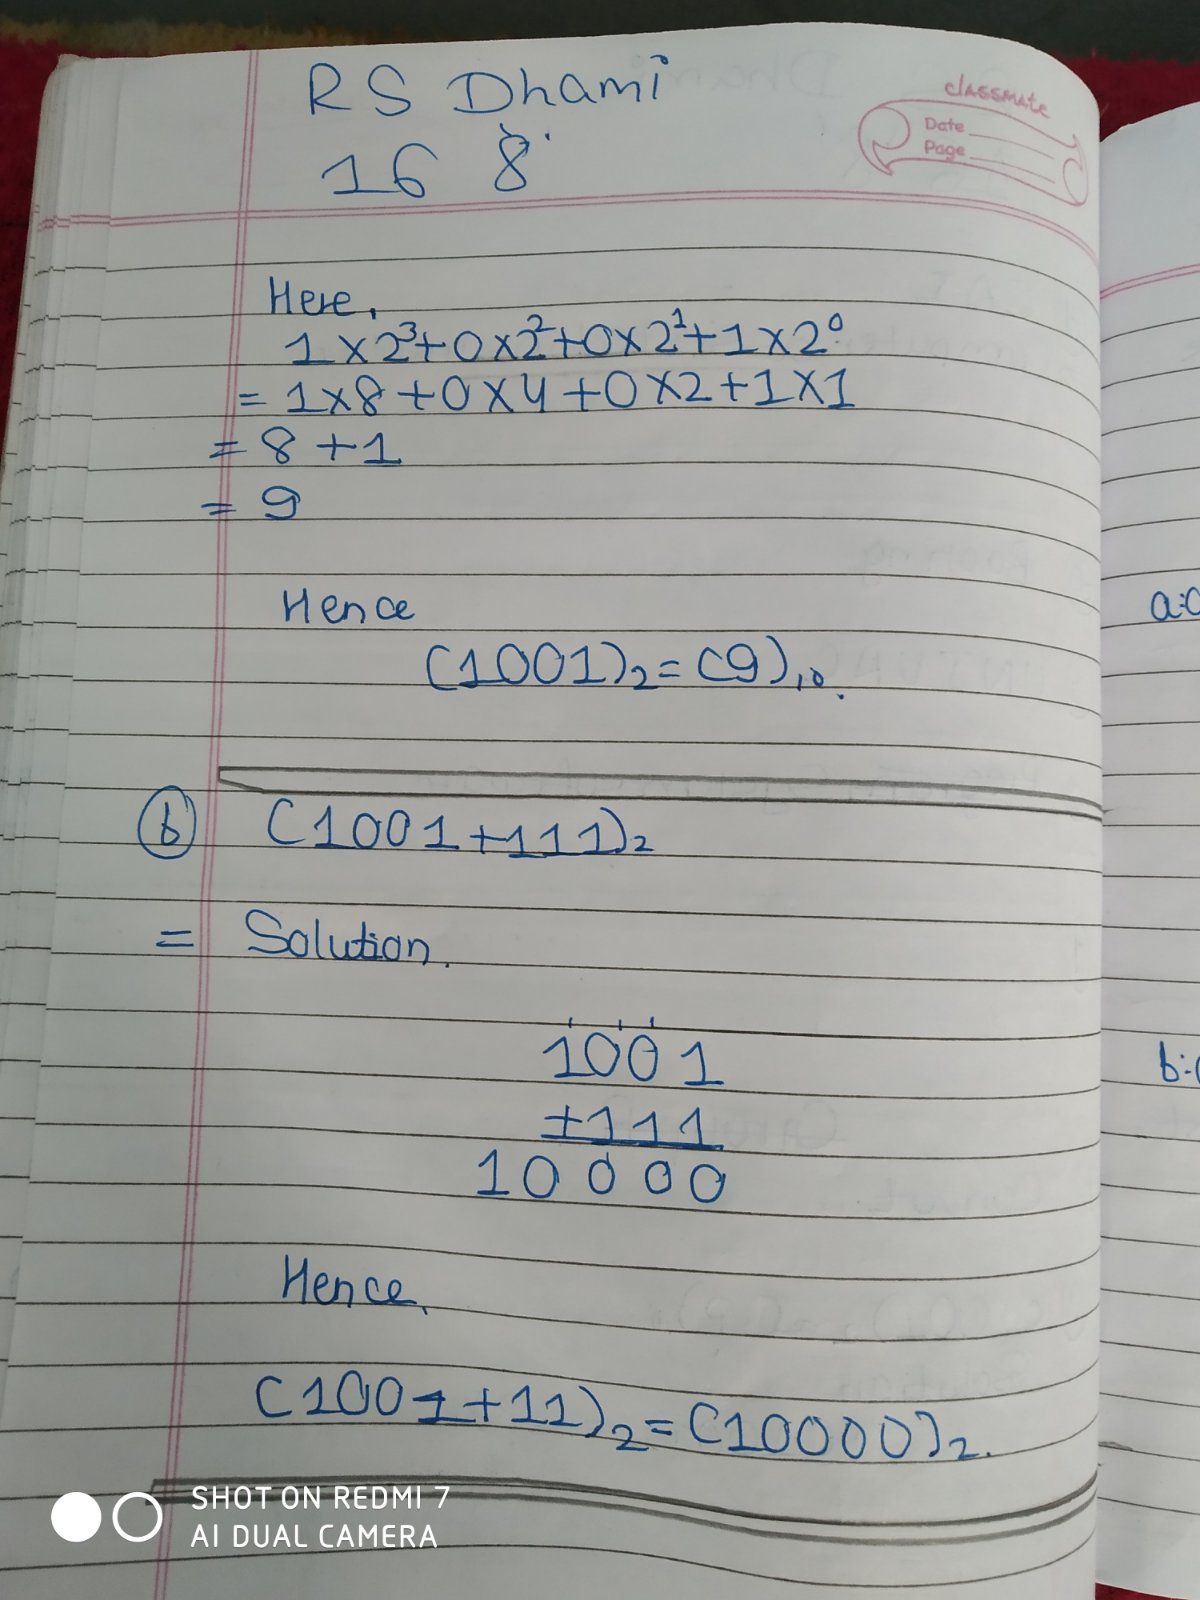 RS Dhami
16 8
classmate
Date
Page
Here,
1×2³+0×2²+0×2¹+1×2⁰
= 1×8+0×4+0×2+1×1
= 8+1
= 9
Hence
(1001)₂=(9)₁₀.
b (1001+111)₂
= Solution.
1001
+111
10000
Hence,
(1001+11)₂=(10000)₂.
a:
b:(
SHOT ON REDMI 7
AI DUAL CAMERA